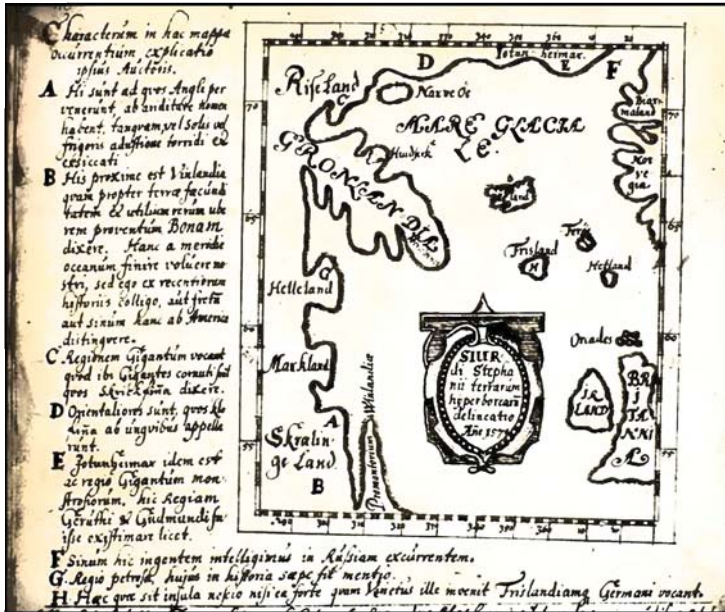 Characterum in hac mappa
occurrentium, explicatio
ipsius Auctoris.
A Hi sunt ad quos Angli per
venerunt, ab ariditate nomen
habent, tanquam vel Solis vel
frigoris adustione torridi et
exsiccati
B His proxime est Vinlandia
quam propter terræ fæcundi
tatem et utilium rerum ube
rem proventum Bonam
dixere. Hanc a meridie
oceanum finire voluere no
stri, sed ego ex recentiorum
historiis colligo, aut fretum
aut sinum hanc ab America
distinguere.
C Regionem Gigantum vocant
quod ibi Gigantes cornuti sint
quos Skrickfinna dixere.
D Orientaliores sunt, quos Klo
finna ab unguibus appella
runt.
E Jotunheimar idem est
ac regio Gigantum mon
strosorum, hic Regiam
Geruthi & Gudmundi fu
isse existimare licet.
F Sinum hic ingentem intelligimus in Russiam excurrentem.
G. Regio petrosa, hujus in historia sæpe fit mentio.
H Hæc quæ sit insula nescio nisi ea forte quam Venetus ille invenit Frislandiamq Germani vocant.
Riseland
C
D
Jotun heimar
E
F
Narve Oe
MARE GLACIA
LE.
Biar
maland
Nor
ve
gia
GRONLANDIA
Huidserk
land
Frisland
H
Ferö
Hetland
Helleland
G
Markland
A
Skralin-
ge Land
B
Promontorium Vinlandiæ
SIUR
di Stepha
nii terrarum
hyperborearū
delineatio
Año 1570
Orcades
IR
LAND
BRI
TAN
NI
A
70
65
60
55
70
65
60
55